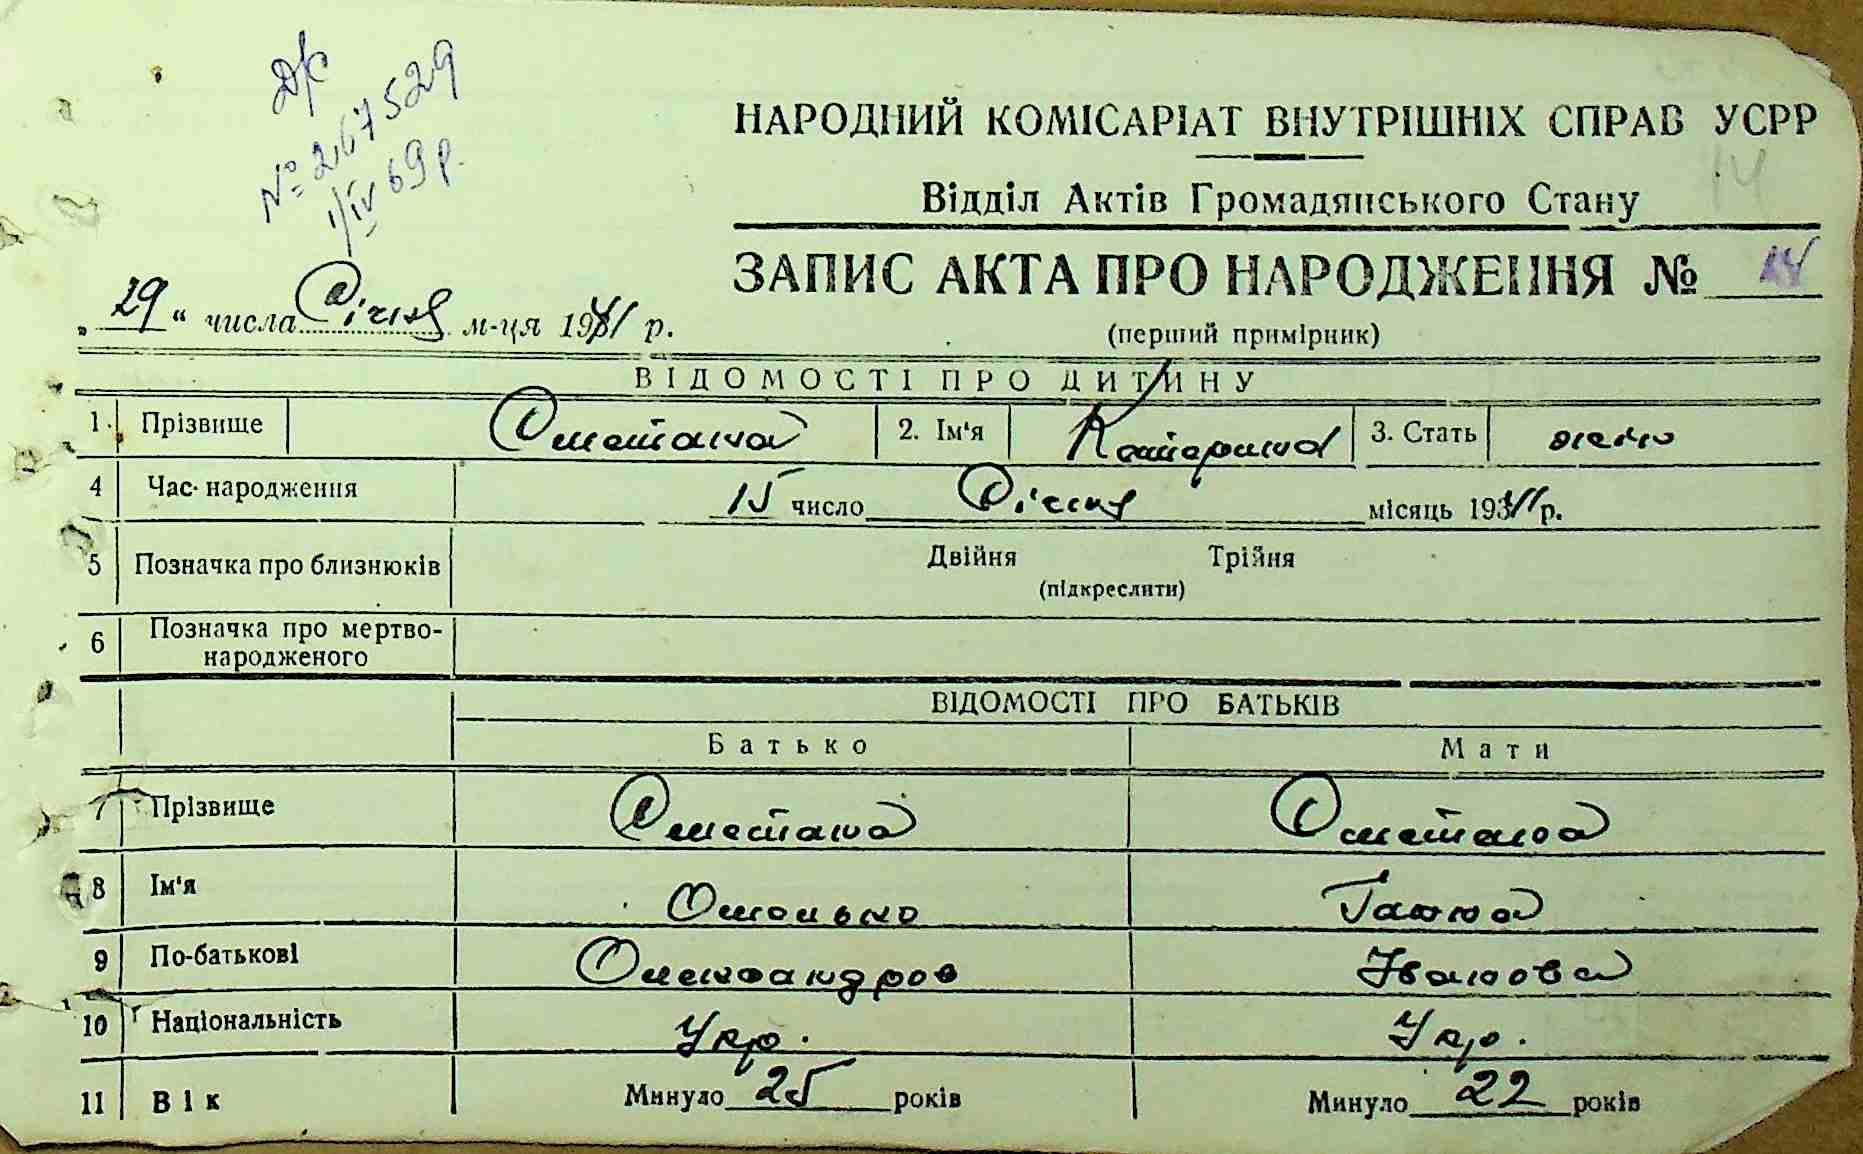 Др
№ 267529
1/IV 69 р.
НАРОДНИЙ КОМІСАРІАТ ВНУТРІШНІХ СПРАВ УСРР
14
Відділ Актів Громадянського Стану
ЗАПИС АКТА ПРО НАРОДЖЕННЯ № 14
„29“ числа Січня м-ця 1941 р.
(перший примірник)
ВІДОМОСТІ ПРО ДИТИНУ
1. Прізвище Сметана 2. Ім'я Катерина 3. Стать жіно
4 Час народження 15 число Січня місяць 1941 р.
5 Позначка про близнюків Двійня Трійня
(підкреслити)
6 Позначка про мертво-
народженого
ВІДОМОСТІ ПРО БАТЬКІВ
Батько Мати
7 Прізвище Сметана Сметана
8 Ім'я Омелько Ганна
9 По-батькові Олександров Іванова
10 Національність Укр. Укр.
11 Вік Минуло 25 років Минуло 22 років